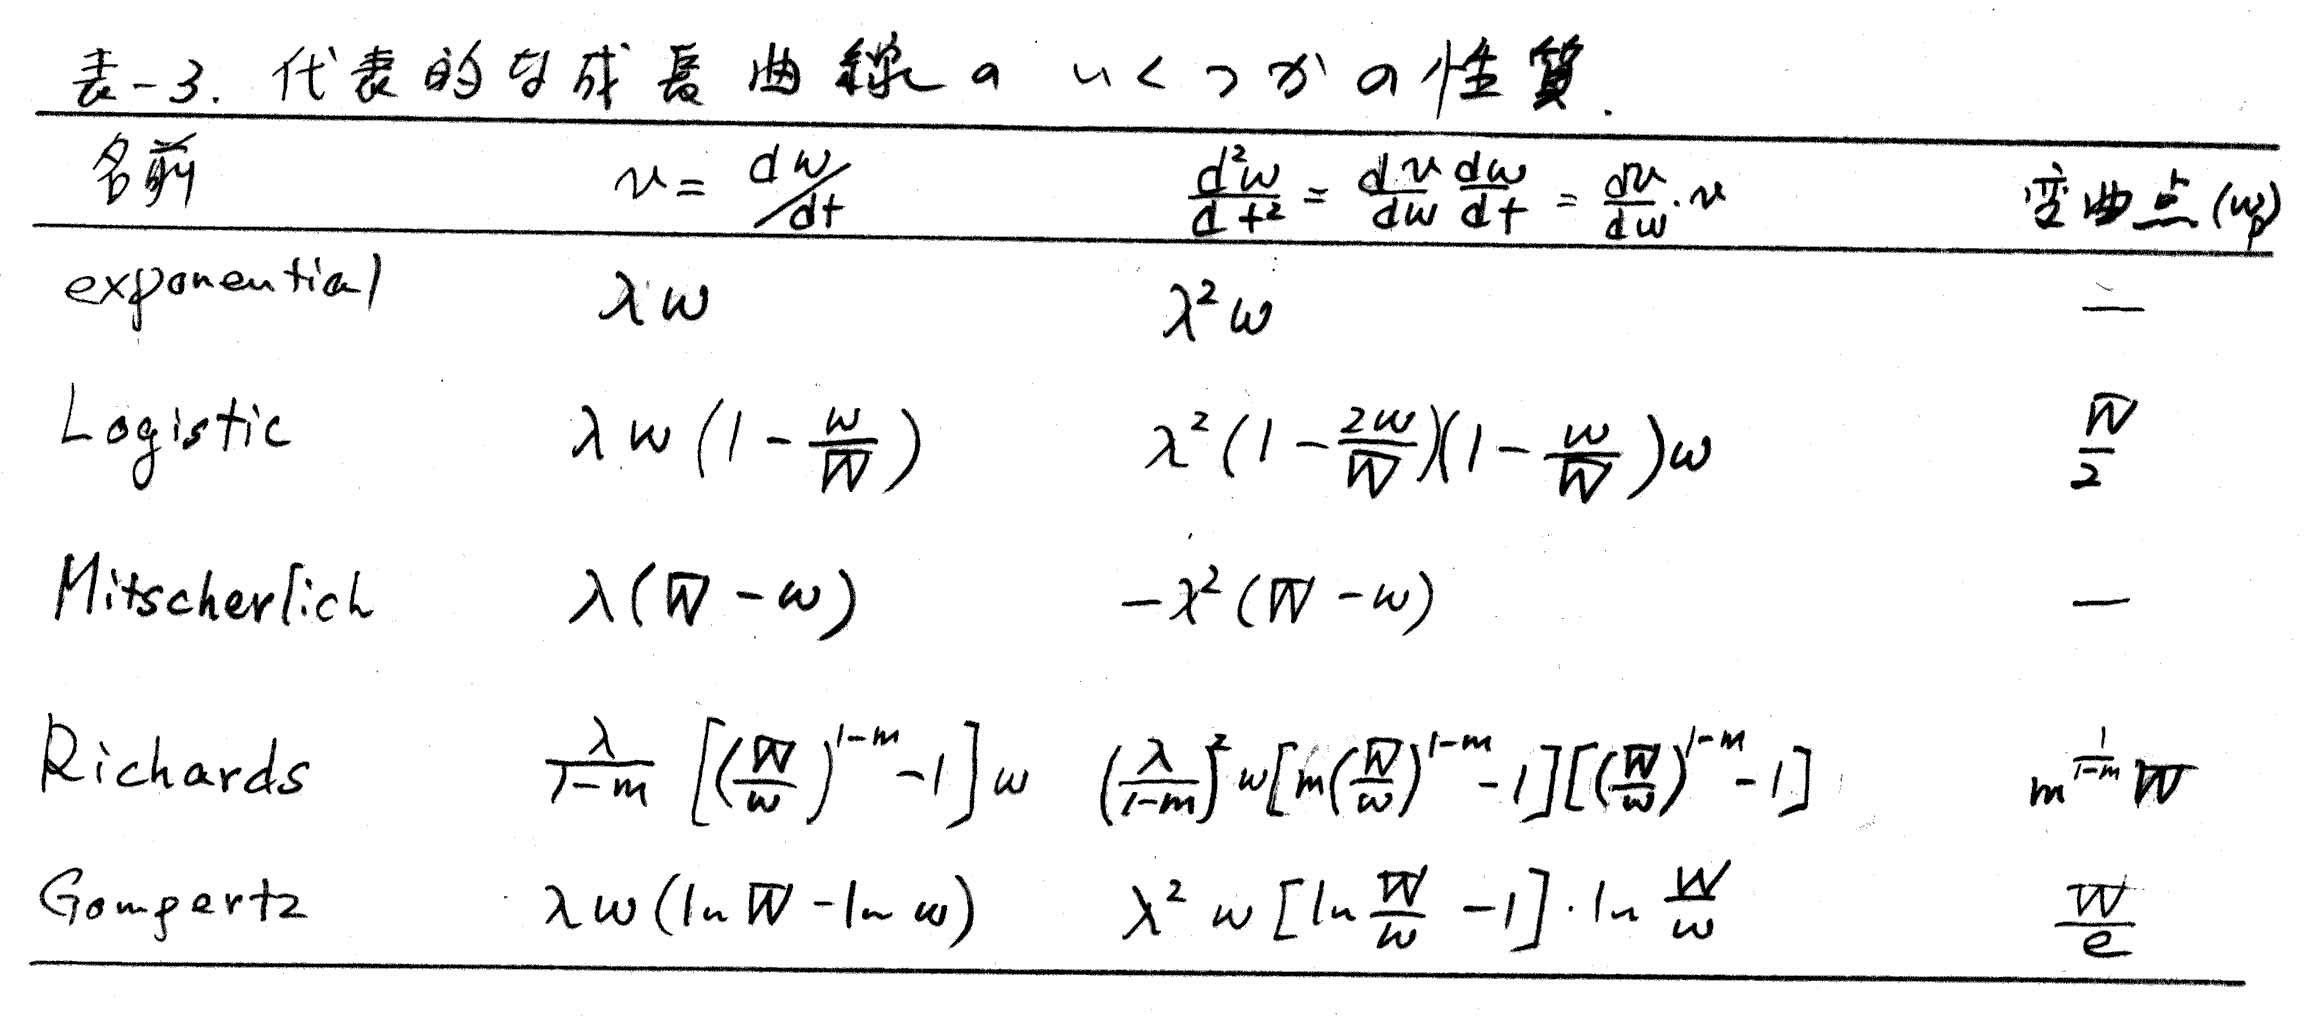 表-3. 代表的な成長曲線の いくつかの性質.
名前 v = dw/dt d²w/dt² = dv/dw dw/dt = dv/dw · v 変曲点(wp)
exponential λw λ²w —
Logistic λw(1 - w/W) λ²(1 - 2w/W)(1 - w/W)w W/2
Mitscherlich λ(W - w) -λ²(W - w) —
Richards λ/(1-m) [(W/w)^(1-m) - 1]w (λ/(1-m))² w[m(W/w)^(1-m) - 1][(W/w)^(1-m) - 1] m^(1/(1-m)) W
Gompertz λw(ln W - ln w) λ² w [ln W/w - 1] · ln W/w W/e